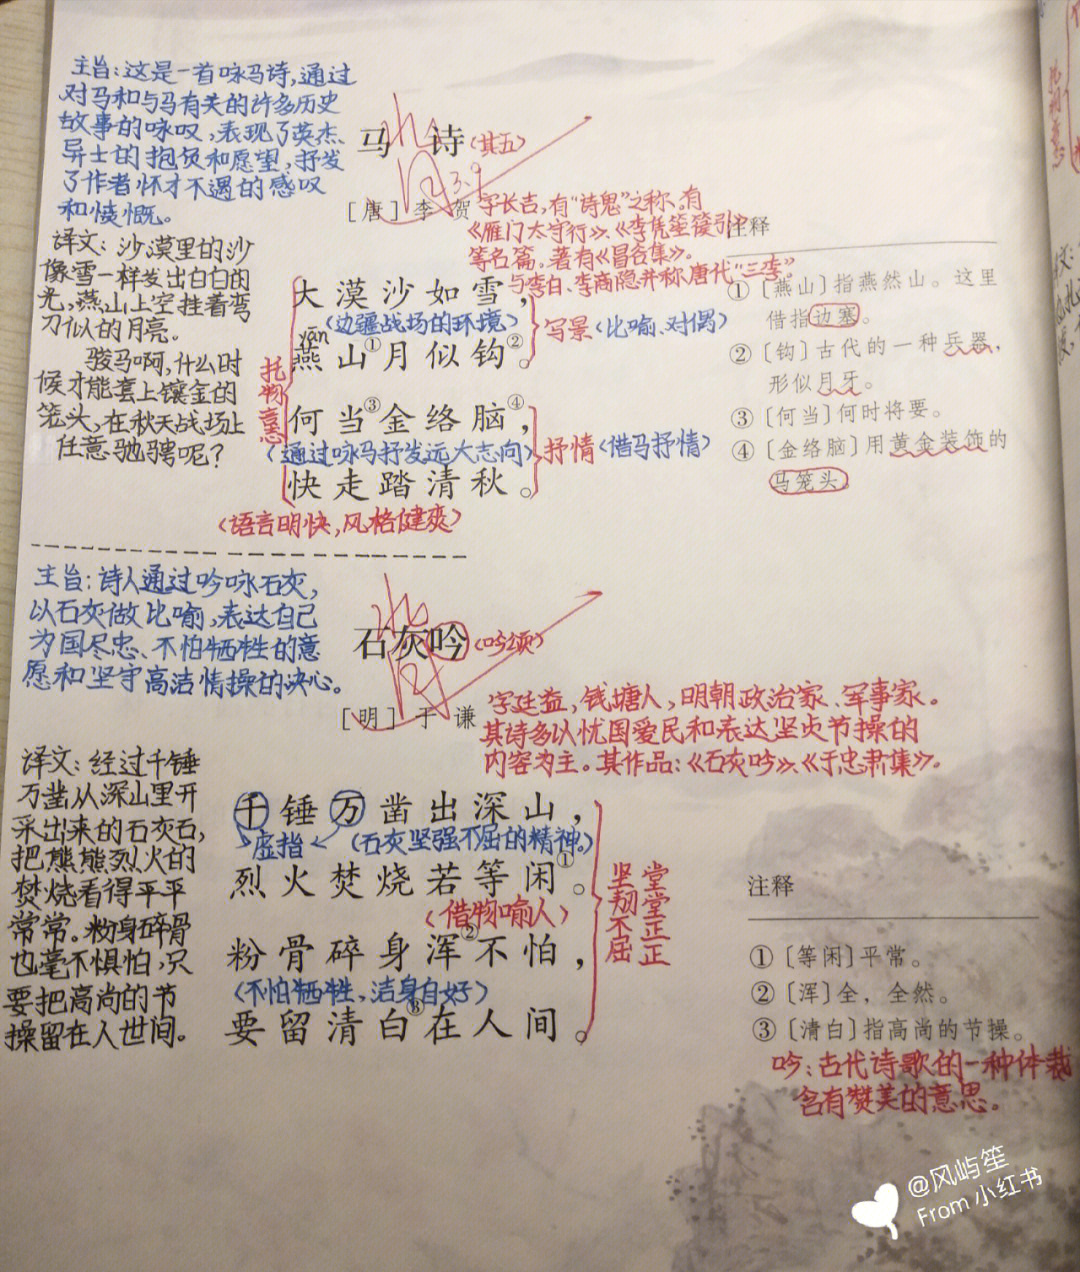 主旨:这是一首咏马诗,通过
对马和与马有关的许多历史
故事的咏叹,表现了英杰
异士的抱负和愿望,抒发
了作者怀才不遇的感叹
和愤慨。
马诗(其五)
3.9
[唐]李贺
字长吉,有"诗鬼"之称,有
《雁门太守行》、《李凭箜篌引》
等名篇。著有《昌谷集》。
与李白、李商隐并称唐代"三李"。
译文:沙漠里的沙
像雪一样发出白白的
光,燕山上空挂着弯
刀似的月亮。
骏马啊,什么时
候才能套上镶金的
笼头,在秋天战场上
任意驰骋呢?
托物言志
大漠沙如雪,
(边疆战场的环境)
yān
燕山①月似钩②。
写景(比喻、对偶)
何当③金络脑④,
(通过咏马抒发远大志向)
抒情(借马抒情)
快走踏清秋。
(语言明快,风格健爽)
注释
①〔燕山〕指燕然山。这里
借指边塞。
②〔钩〕古代的一种兵器,
形似月牙。
③〔何当〕何时将要。
④〔金络脑〕用黄金装饰的
马笼头。
主旨:诗人通过吟咏石灰,
以石灰做比喻,表达自己
为国尽忠、不怕牺牲的意
愿和坚守高洁情操的决心。
石灰吟(吟颂)
[明]于谦
字廷益,钱塘人,明朝政治家、军事家。
其诗多以忧国爱民和表达坚贞节操的
内容为主。其作品:《石灰吟》、《于忠肃集》。
译文:经过千锤
万凿从深山里开
采出来的石灰石,
把熊熊烈火的
焚烧看得平平
常常。粉身碎骨
也毫不惧怕,只
要把高尚的节
操留在人世间。
千锤万凿出深山,
虚指
(石灰坚强不屈的精神。)
烈火焚烧若等闲①。
(借物喻人)
粉骨碎身浑②不怕,
(不怕牺牲,洁身自好)
要留清白③在人间。
坚韧不屈
堂堂正正
注释
①〔等闲〕平常。
②〔浑〕全,全然。
③〔清白〕指高尚的节操。
吟:古代诗歌的一种体裁
含有赞美的意思。
@风屿笙
From 小红书